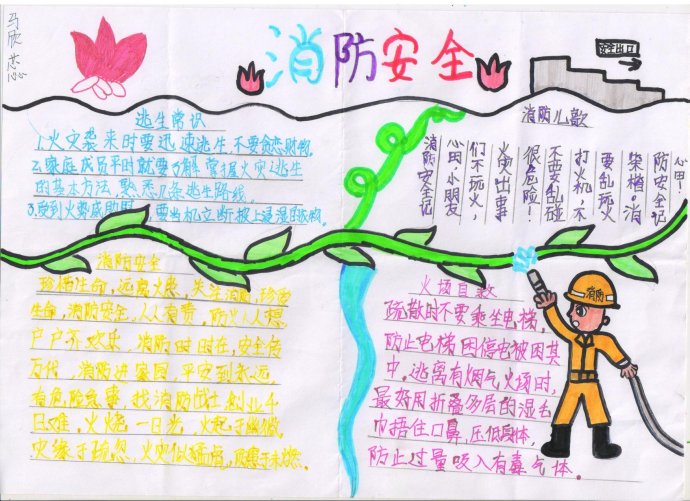 消防安全
安全出口
逃生常识
1.火灾袭来时要迅速逃生,不要贪恋财物。
2.家庭成员平时就要了解掌握火灾逃生
的基本方法,熟悉几条逃生路线。
3.受到火势威胁时,要当机立断披上浸湿的衣物。
消防儿歌
消防安全记
心田,小朋友
们不玩火,
出事
很危险!
不要乱碰
打火机,不
要乱玩火
柴 。消
防安全记
心田!
消防安全
珍惜生命,远离火患,关注消防,珍爱
生命,消防安全,人人有责,防火人人想,
户户齐欢乐,消防时时在,安全传
万代,消防进家园,平安到永远,
有危险 事,找消防战士,创业千
日难,火烧一日光,火起于幽微,
灾缘于疏忽,火灾似猛虎, 患于未燃。
火场自救
疏散时不要乘坐电梯,
防止电梯因停电被困其
中。逃离有烟气火场时,
最好用折叠多层的湿毛
巾捂住口鼻,压低身体,
防止过量吸入有毒气体。
消防